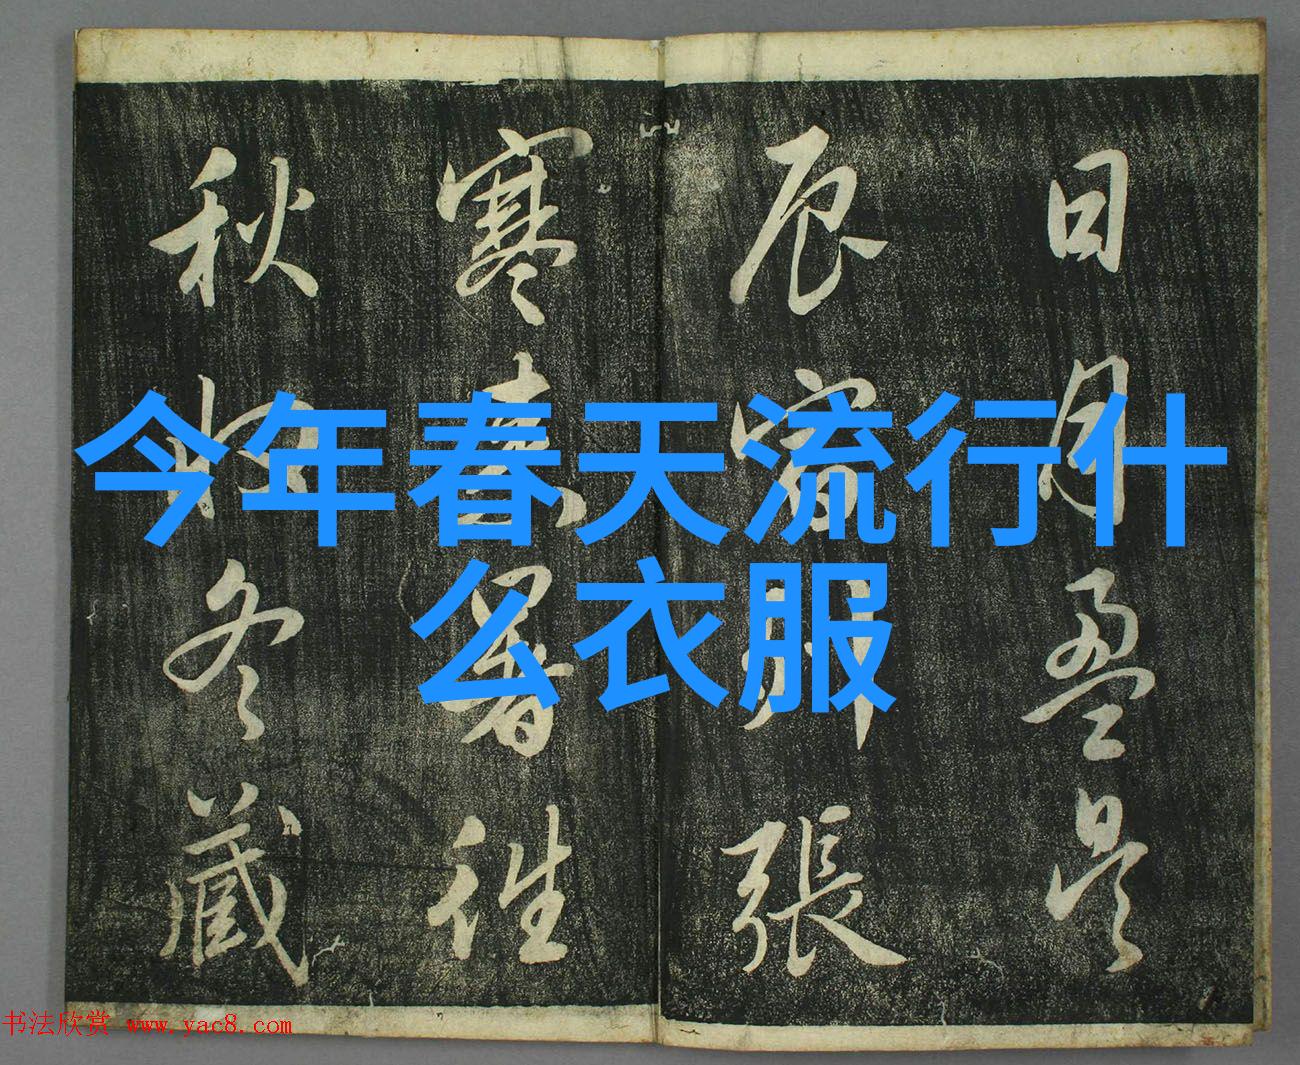 今年春天流行什
么衣服
日月盈昃
辰宿張
寒暑往
秋收冬藏
书法欣赏 www.yac8.com